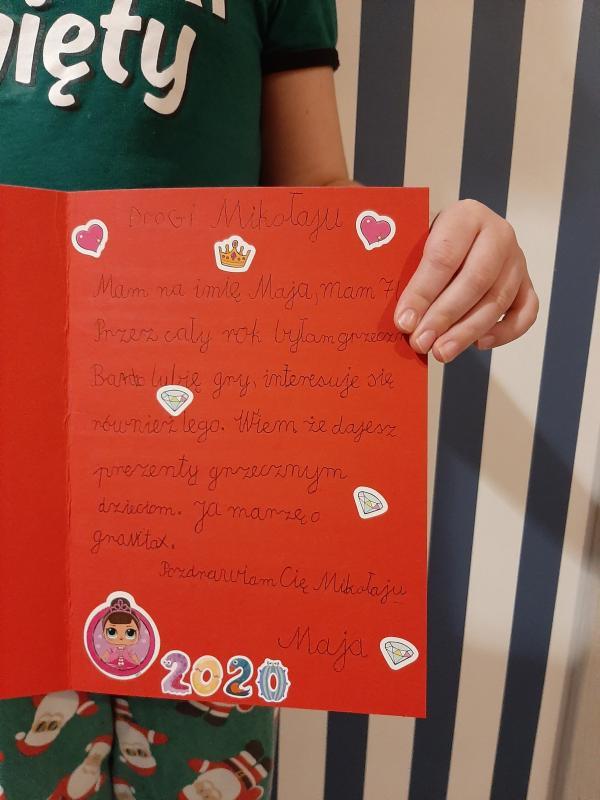 więty
Drogi Mikołaju
Mam na imię Maja, mam 7
Przez cały rok byłam grzeczn
Bardo lubię gry, interesuje się
również lego. Wiem że dajesz
prezenty grzecznym
dzieciom. Ja marzę o
gravitax.
Pozdrawiam Cię Mikołaju
Maja
2020